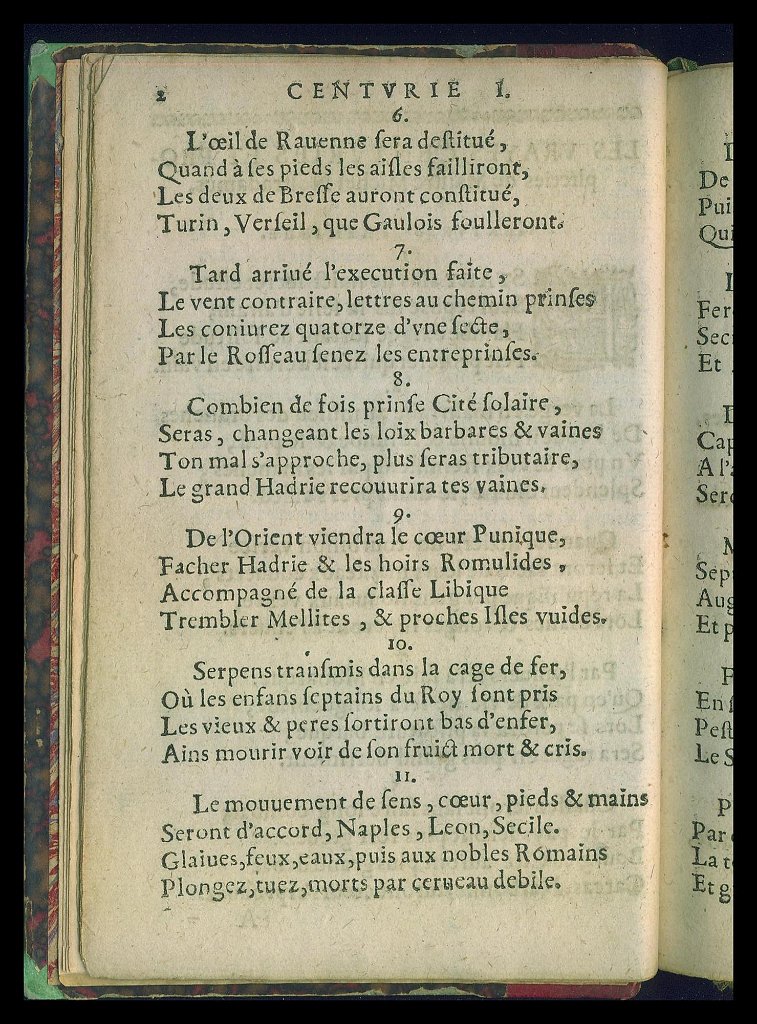 2 CENTVRIE I.
6.
L'œil de Rauenne ſera deſtitué,
Quand à ſes pieds les aiſles failliront,
Les deux de Breſſe auront conſtitué,
Turin, Verſeil, que Gaulois foulleront.
7.
Tard arriué l'execution faite,
Le vent contraire, lettres au chemin prinſes
Les coniurez quatorze d'vne ſecte,
Par le Roſſeau ſenez les entreprinſes.
8.
Combien de fois prinſe Cité ſolaire,
Seras, changeant les loix barbares & vaines
Ton mal s'approche, plus ſeras tributaire,
Le grand Hadrie recouurira tes vaines.
9.
De l'Orient viendra le cœur Punique,
Facher Hadrie & les hoirs Romulides,
Accompagné de la claſſe Libique
Trembler Mellites, & proches Iſles vuides.
10.
Serpens tranſmis dans la cage de fer,
Où les enfans ſeptains du Roy ſont pris
Les vieux & peres ſortiront bas d'enfer,
Ains mourir voir de ſon fruict mort & cris.
11.
Le mouuement de ſens, cœur, pieds & mains
Seront d'accord, Naples, Leon, Secile.
Glaiues, feux, eaux, puis aux nobles Romains
Plongez, tuez, morts par cerueau debile.
De
Pui
Qui
Fer
Sec
Et
Cap
A l'a
Sero
Sept
Aug
Et p
En ſ
Peſt
Le S
Par
La t
Et g